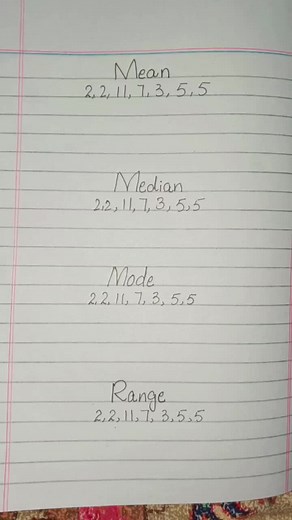 Mean
2, 2, 11, 7, 3, 5, 5
Median
2,2, 11, 7, 3, 5, 5
Mode
2 2, 11, 7, 3, 5, 5
Range
2, 2, 11, 7, 3, 5, 5